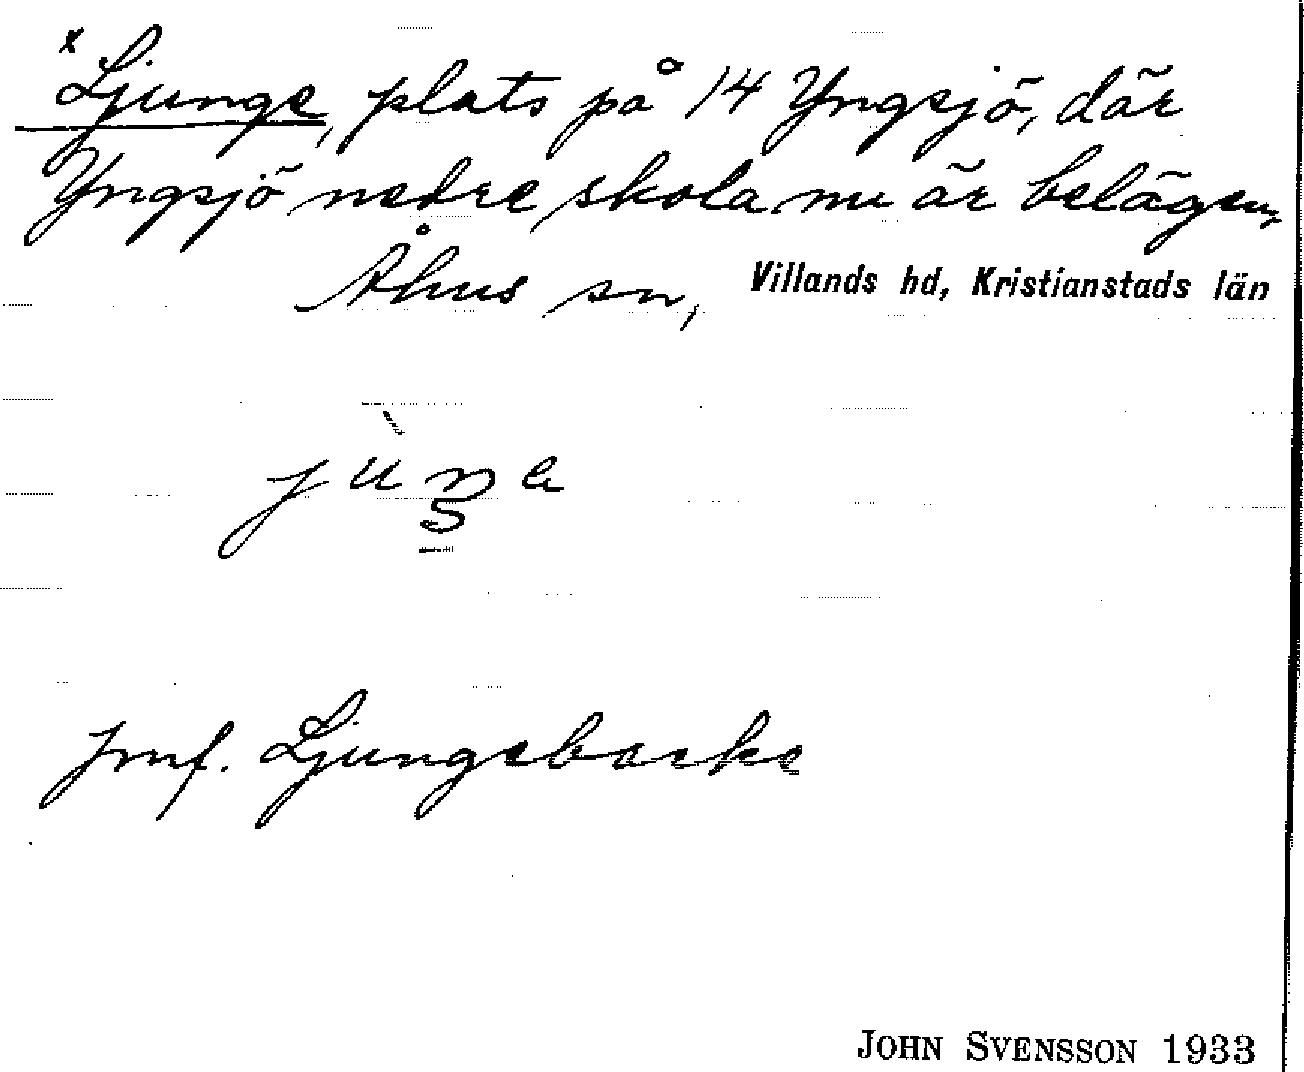 x Ljunge, plats på 14 Yngsjö, där
Yngsjö nedre skola nu är belägen,
Åhus sn, Villands hd, Kristianstads län
jùŋe
Jmf. Ljungebacke
JOHN SVENSSON 1933